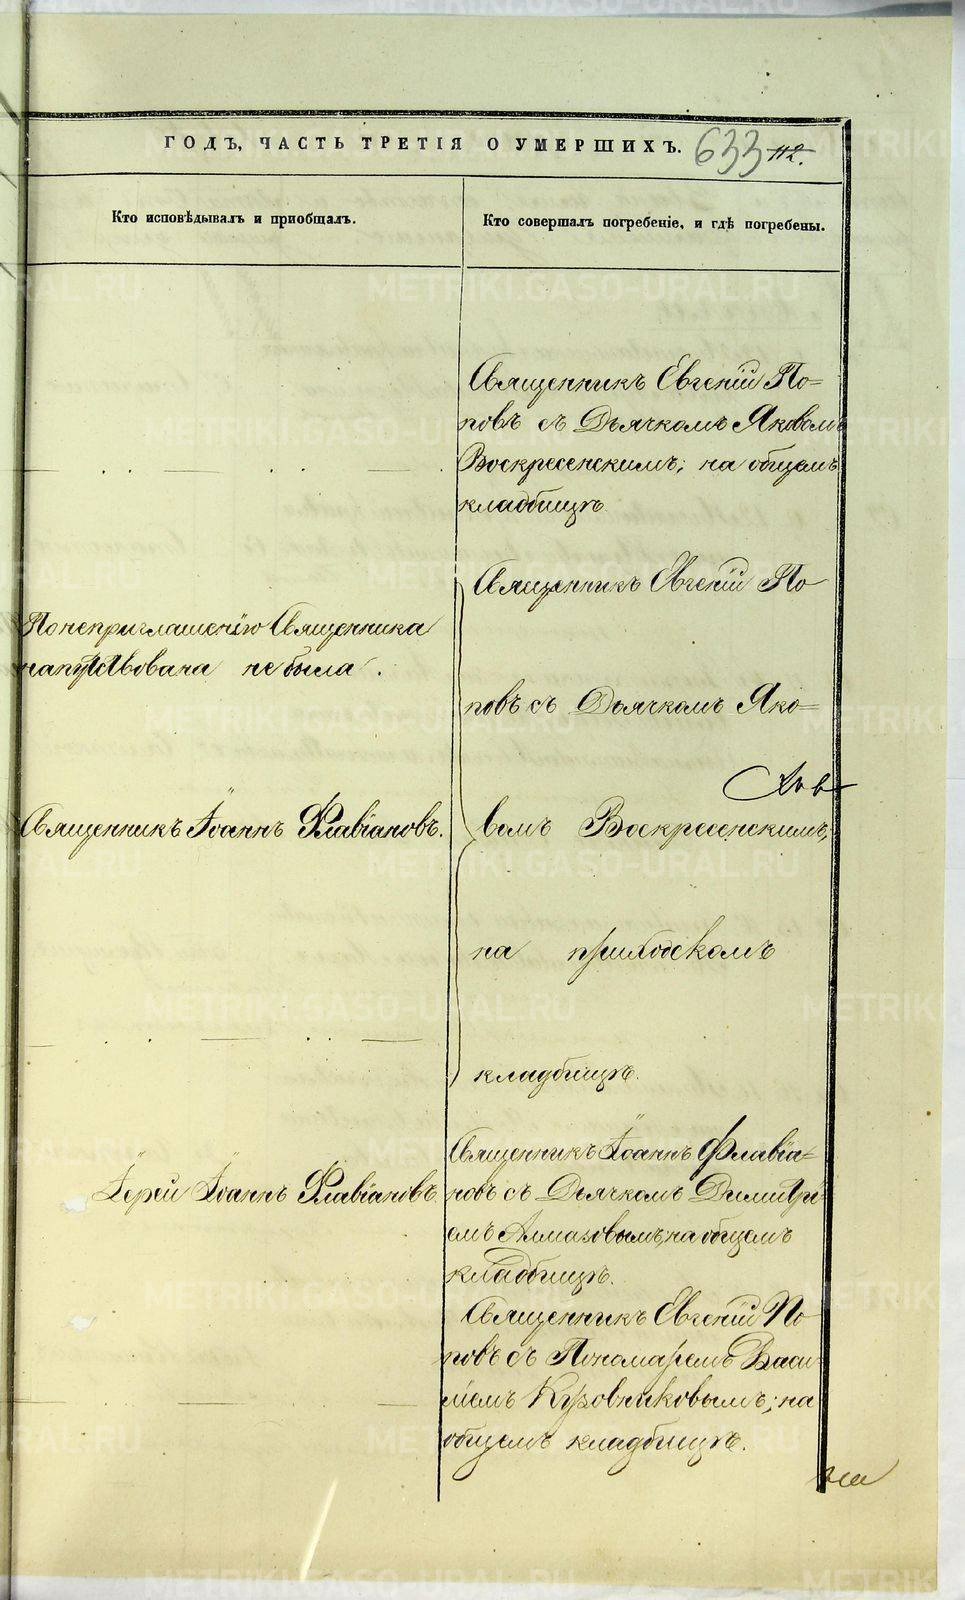 ГОДЪ, ЧАСТЬ ТРЕТІЯ О УМЕРШИХЪ. 633 112.
Кто исповѣдывалъ и пріобщалъ.
Кто совершалъ погребеніе, и гдѣ погребены.
Священникъ Евгеній По=
повъ съ Дьячкомъ Яковомъ
Воскресенскимъ; на общемъ
кладбищѣ
По неприглашенію Священника
напутствована не была.
Священникъ Іоаннъ Флавіановъ.
Священникъ Евгеній По
повъ съ Дьячкомъ Яко=
вомъ Воскресенскимъ,
на приходскомъ
кладбищѣ.
Іерей Іоаннъ Флавіановъ.
Священникъ Іоаннъ Флавіа=
новъ съ Дьячкомъ Димитрі
емъ Алмазовымъ, на общемъ
кладбищѣ.
Священникъ Евгеній По
повъ съ Пономаремъ Васи
ліемъ Кузовниковымъ; на
общемъ кладбищѣ.
METRIKI.GASO-URAL.RU